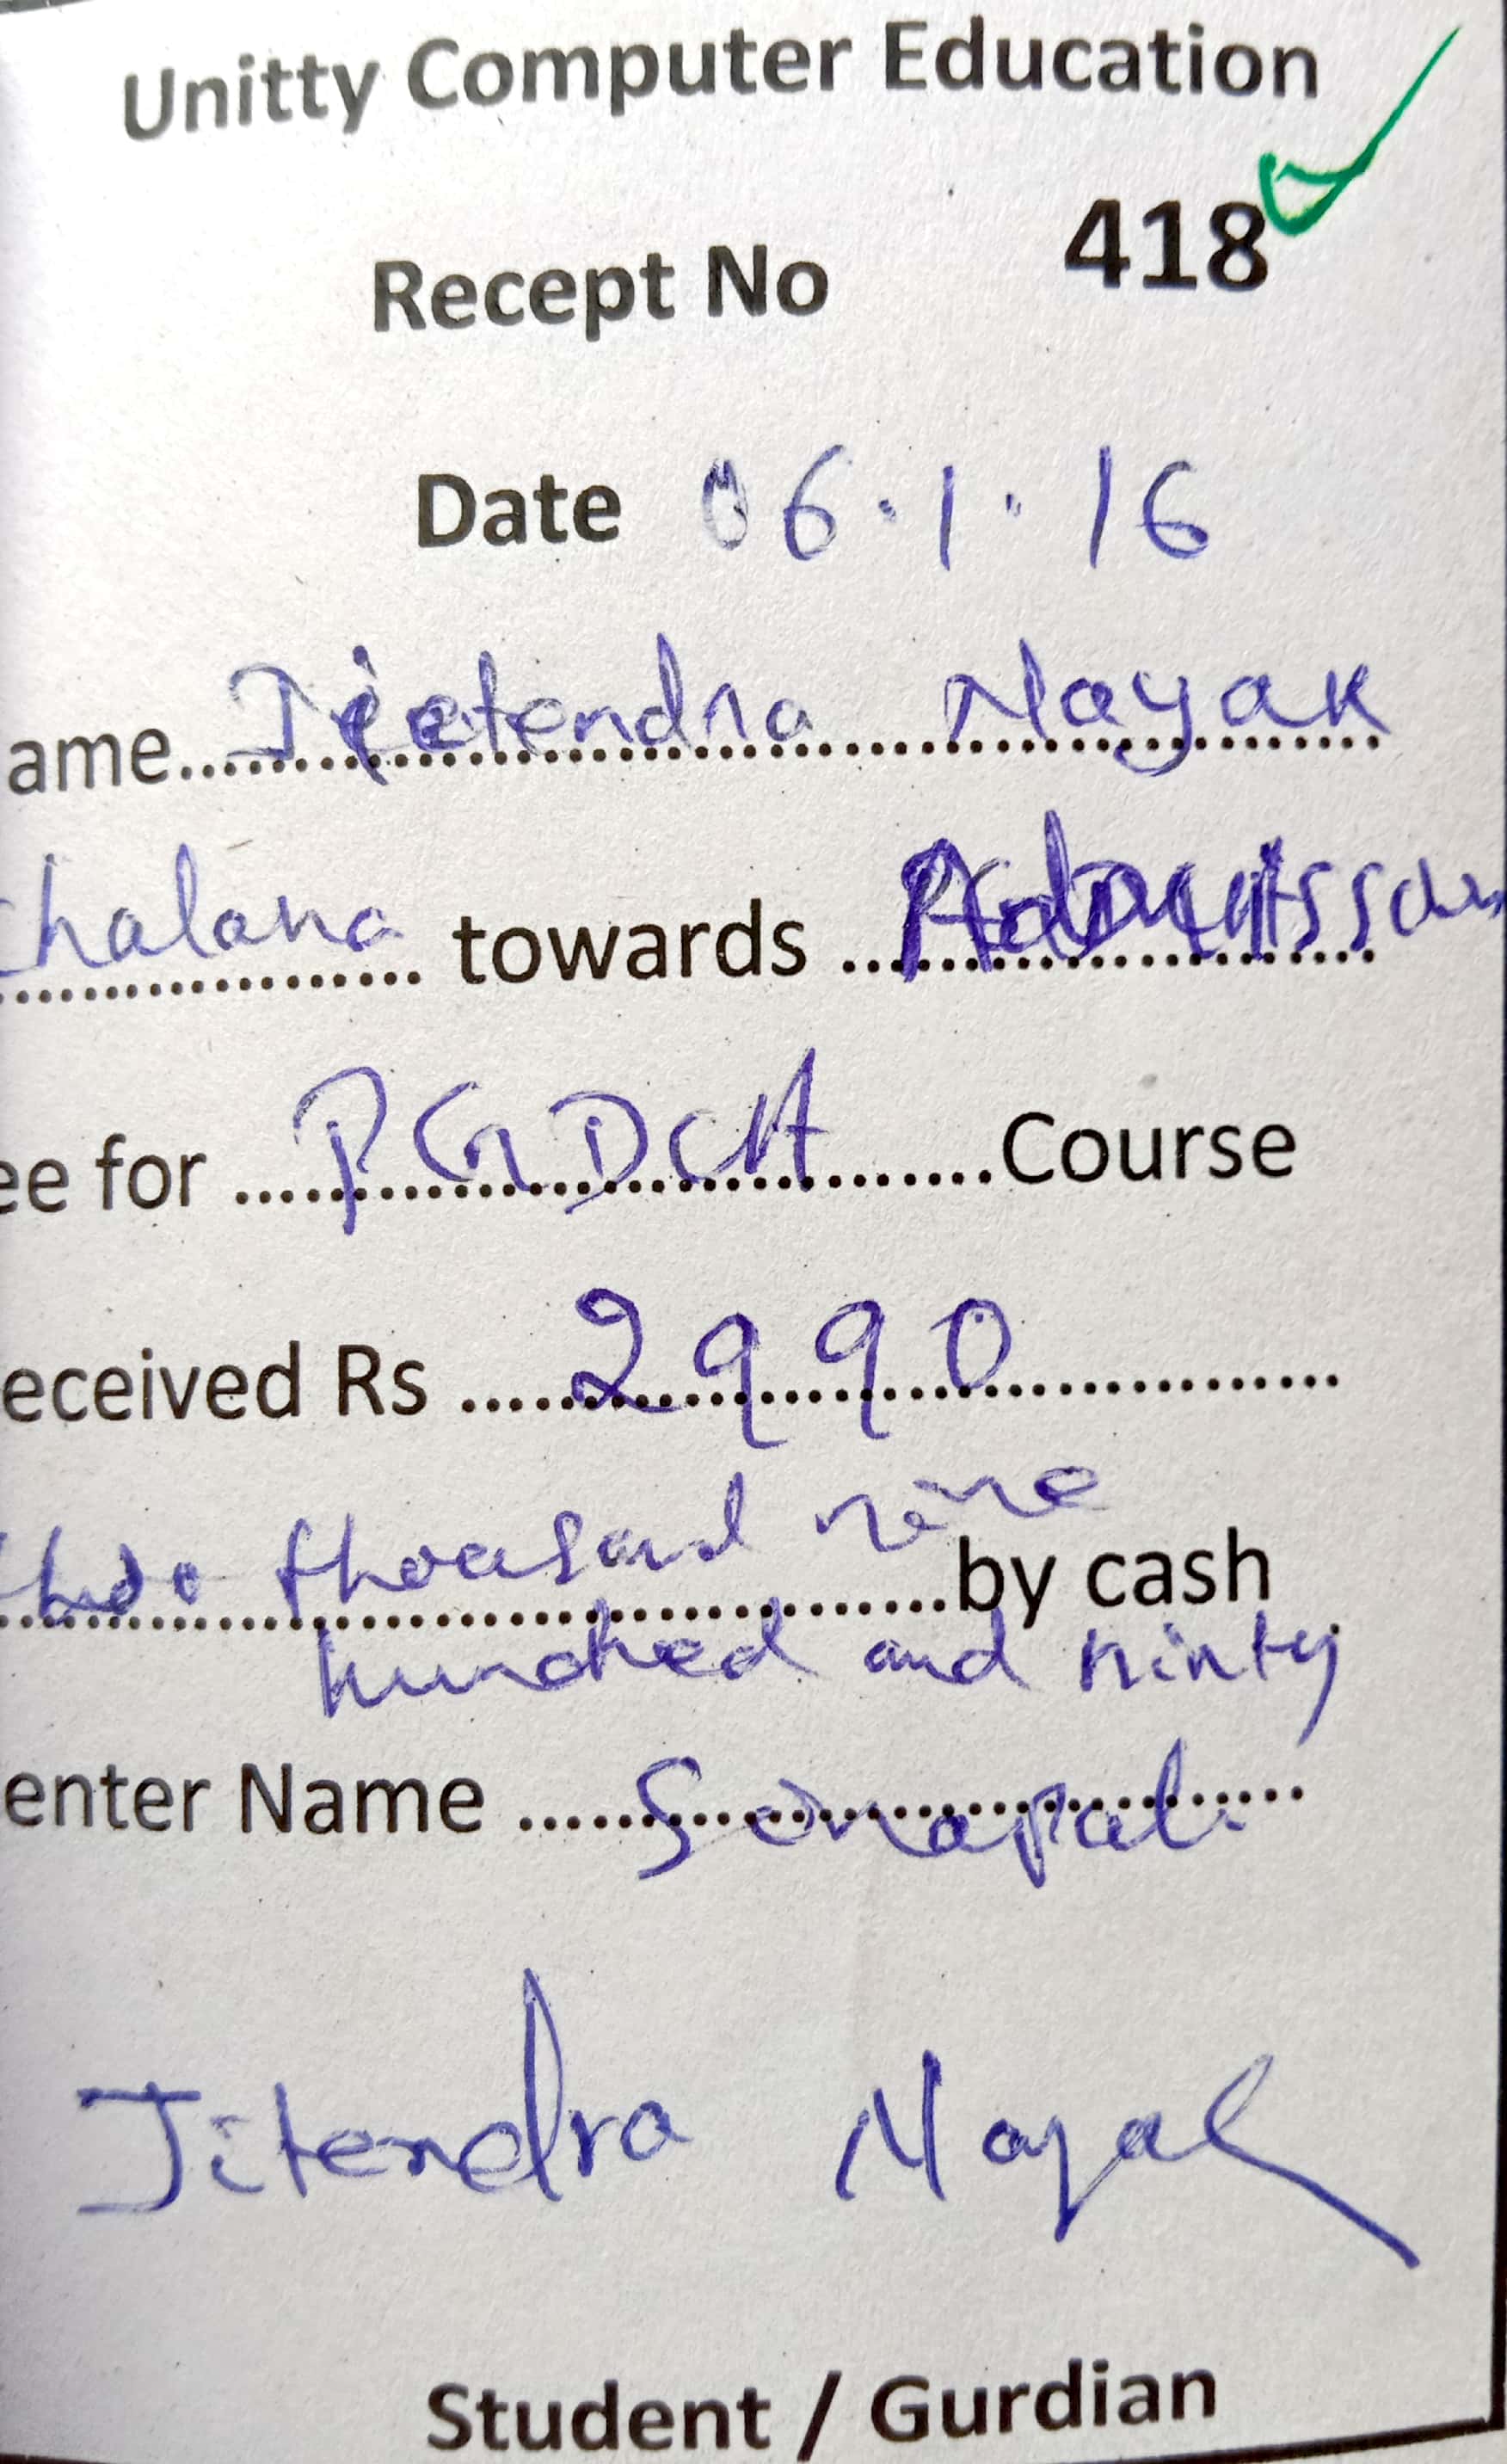 Unitty Computer Education
Recept No 418
Date 06.1.16
ame.......Jitendra Nayak
halana towards ...Admission
ee for ...PGDCA...Course
eceived Rs ...2990...
two thousand nine by cash
hundred and ninty
enter Name ...Sinapali
Jitendra Nayak
Student / Gurdian